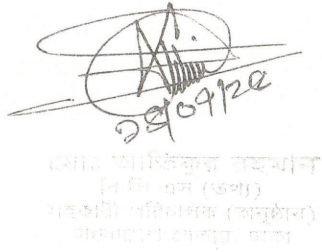 ২৪/০৭/২৫
মোঃ আতিকুর রহমান
বি সি এস (তথ্য)
সহকারী পরিচালক (অনুষ্ঠান)
বাংলাদেশ বেতার, ঢাকা